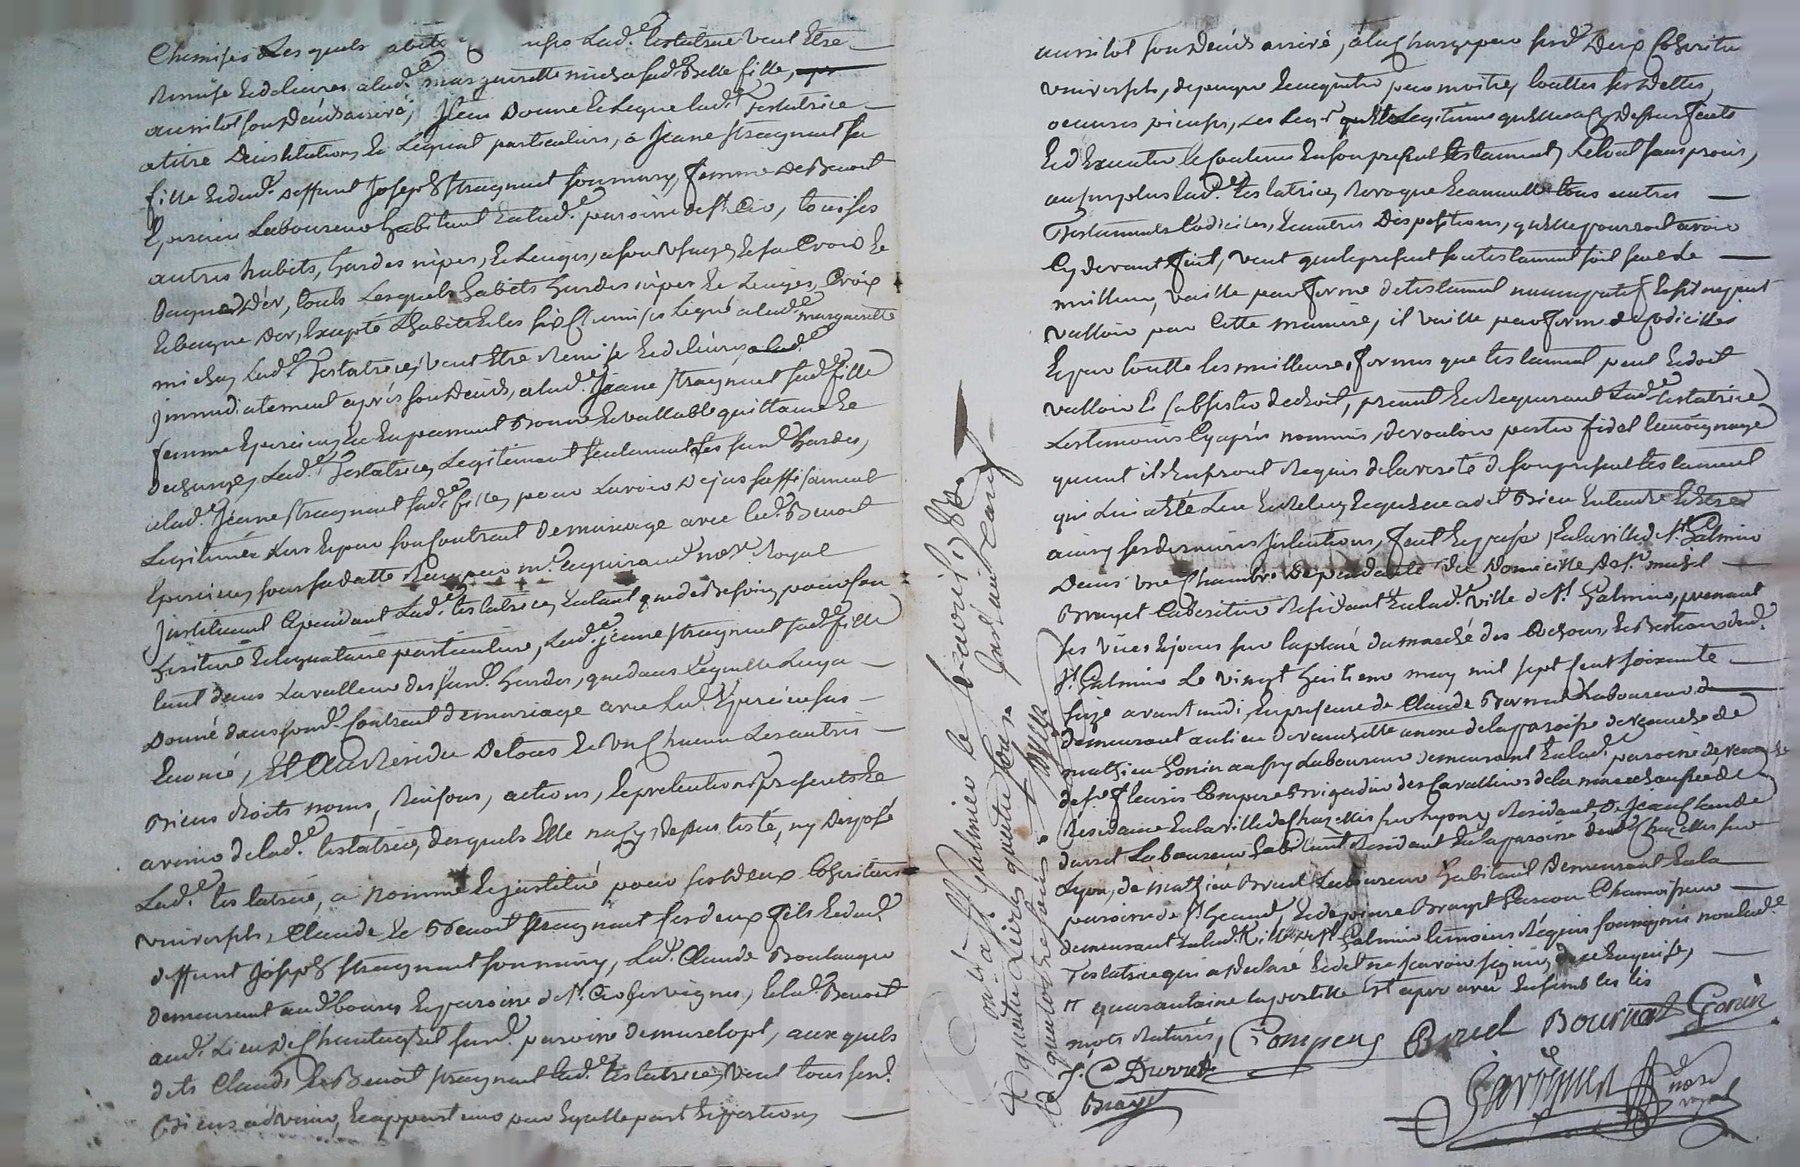 Chemises Lesquels abits lad.e testatrice veut Etre
Remise Et delivrés a lad.e margueritte michon sad.e Belle fille,
aussitot son Deceds arrivé, Item Donne Et Legue lad.e Testatrice
a titre D'institution Et Legat particulier, a Jeane Stragnat sa
fille Et dud.t deffunt Joseph Stragnat son mary, femme de Benoit
Epercieu Laboureur habitant En lad.e paroisse de St. Cir, tous ses
autres habits, hardes nipes, Et Linges, a son usage, Et sa Croix Et
Bague D'or, touts Lesquels habits hardes nipes Et Linges, Croix
Et bague Dor, Excepté L'habit Et les six Chemises Legué a lad.e margueritte
michon, Lad.e Testatrice, veut Etre Remise Et delivrés
immediatement aprés son Deceds, a lad.e Jeane Stragnat sad.e fille
femme Epercieu, Et En passant Bonne Et vallable quittance Et
decharge, Lad.e Testatrice, Legitimant seulement Les sus.d hardes,
a lad.e Jeane Stragnat sad.e fille, pour Lavoir Deja suffisament
Legitimée Lors Et par son Contrant de mariage avec led.t Benoit
Epercieu sous sa datte Reçu par m.e no.re Royal
instituant Cependant Lad.e testatrice, En tant que de Besoin, pour son
heritiere Et legataire particuliere, Lad.e Jeane Stragnat sad.e fille
tant dans La valleur des sus.d hardes, que dans Laquelle Luy a
Donné dans son.d Contrant de mariage avec Led. Epercieu sus
Enoncé, Et Au Residu De tous Et Un Chacun Les autres
Biens droits noms, Raisons, actions, Et pretentions presents Et
avenir de lad.e testatrice, desquels Elle na Cy dessus testé, ny disposé
Lad.e testatrice, a nommé Et institué pour ses deux Cohéritiers
universels, Claude Et Benoit Stragnat ses deux fils Et dud.t
deffunt Joseph Stragnat son mary, Led. Claude Boulanger
demeurant aud. bourg Et paroisse de St. Cir Les vignes, Et led. Benoit
aud. Lieu de Chantegret sus.d paroisse de marclopt, auxquels
dits Claude Et Benoit Stragnat Lad.e testatrice, veut tous ses.d
Biens advenir, Et appartenir par Egalle part Et portions
aussitot son Deceds arrivé, a la Charge par ses.d Deux Coheritiers
universels, de payer Et acquitter par moitié, touttes ses Dettes,
oeuvres pieuses, Les Legs Et Legitimes quelle a Cy dessus faits
Et d'Executer le Contenu En son present testament, Le tout sans procés,
au surplus lad.e testatrice, Revoque Et annulle tous autres
Testaments Codiciles, Et autres Dispositions, quelle pourroit avoir
Cy devant fait, veut que le present son testament soit seul Et
meilleur, vaille par forme de testament nuncupatif Et sil ne peut
valloir par Cette maniere, il vaille par forme de Codicilles
Et par toutte les meilleure formes que testament peut Et doit
valloir Et subsister de droit, priant Et Requerant Lad.e testatrice
Les temoins Cy aprés nommés, de vouloir porter fidel temoignage
quant ils En seront Requis de la verité de son present testament
qui Lui a Eté Leu Et Releu, Lequel Elle a dit Bien Entendre Et Etre
ainsy ses dernieres intentions, fait Et passé, En la ville de St. Galmier
Dans une Chambre Dependante du Domicille de S.r
Brayet Cabaretier Residant En lad.e ville de St. Galmier, prenant
ses vües Et jours sur la place du marché des Cochons, Et Bestiaux dud.
St. Galmier Le vingt huitieme may mil sept Cent soixante
seize avant midi, En presence de Claude Bornat Laboureur de
demeurant au lieu de annexe de la paroisse de
mathieu Gonin aussy Laboureur demeurant En lad. paroisse de
de S.r fleuris Compere Brigadier des Cavalliers de la marechaussée de
Residance En la ville de Chazelles sur Lyon y Residant, de Jean Claude
Durret Laboureur habitant Residant En la paroisse dud. Chazelles sur
Lyon, de Mathieu Bruel Laboureur habitant Demeurant En la
paroisse de St. Et de pierre Brayet Garcon Chamoiseur
demeurant En lad. Ville de St. Galmier temoins Requis soussignés non lad.e
Testatrice qui a Declaré Et dit ne scavoir signer, de ce Enquise,
mots Raturés, Compere Bruel Bournat Gonin
J. C. Durret
Brayet
no.re
royal
con.lé a St. Galmier le
quatre Livres quatre sols